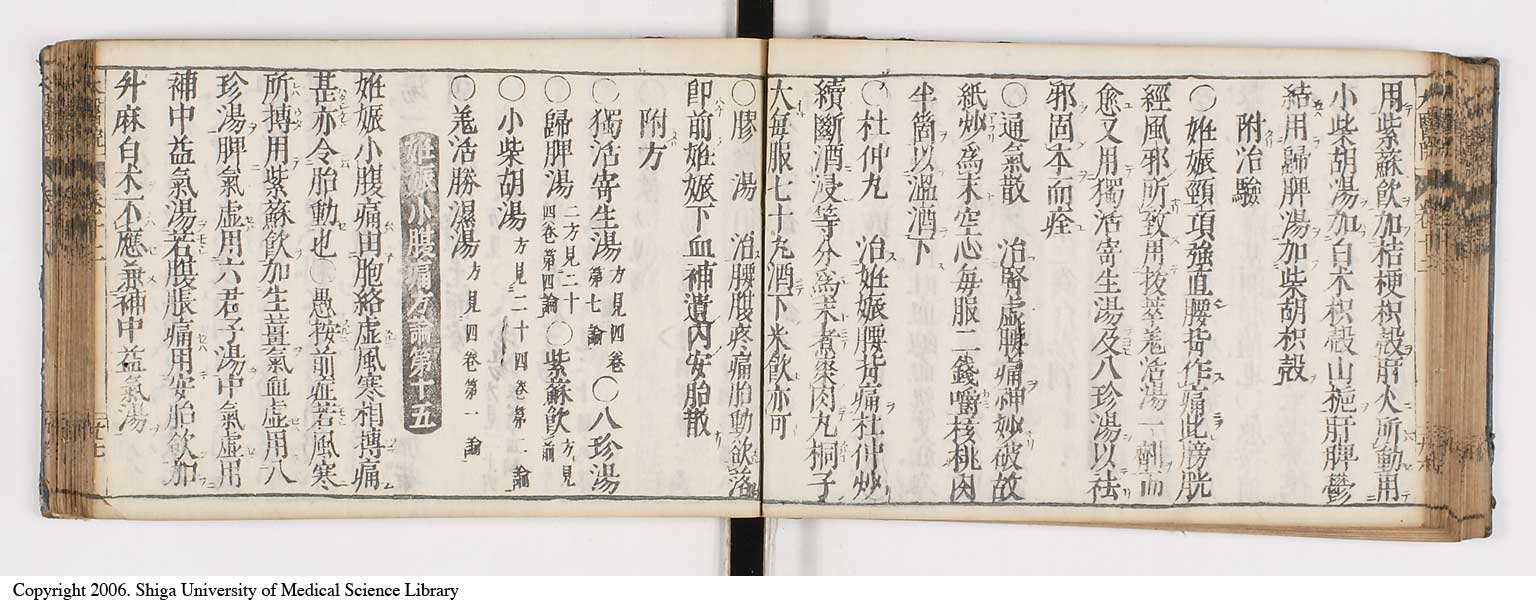 用紫蘇飲加桔梗枳殼肝火所動用
小柴胡湯加白朮枳殼山梔肝脾鬱
結用歸脾湯加柴胡枳殼
附治驗
○姙娠頸項強直腰背作痛此膀胱
經風邪所致用拔萃羗活湯一劑而
愈又用獨活寄生湯及八珍湯以祛
邪固本而痊
○通氣散　治腎虛腰痛神妙破故
紙炒爲末空心每服二錢嚼核桃肉
半箇以溫酒下
○杜仲丸　治姙娠腰背痛杜仲炒
續斷酒浸等分爲末煮棗肉丸桐子
大每服七十丸酒下米飲亦可
○膠　湯　治腰腹疼痛胎動欲落
即前姙娠下血補遺內安胎散
附方
○獨活寄生湯方見四卷第七論○八珍湯
○歸脾湯二方見二十四卷第四論○紫蘇飲方見前
○小柴胡湯方見二十四卷第二論
○羗活勝濕湯方見四卷第一論
姙娠小腹痛方論第十五
姙娠小腹痛由胞絡虛風寒相搏痛
甚亦令胎動也　愚按前症若風寒
所搏用紫蘇飲加生薑氣血虛用八
珍湯脾氣虛用六君子湯中氣虛用
補中益氣湯若腹脹痛用安胎飲加
升麻白朮不應兼補中益氣湯
Copyright 2006. Shiga University of Medical Science Library